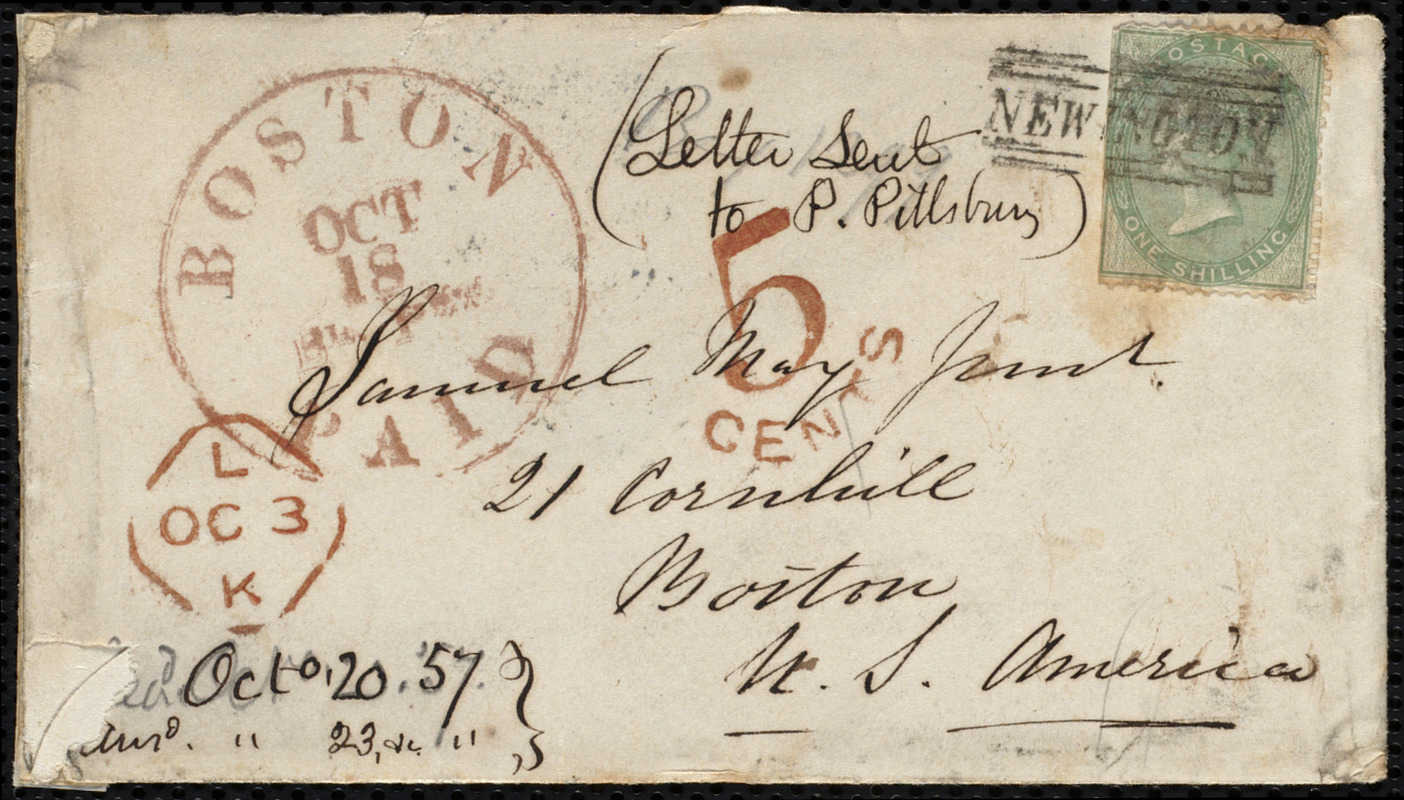 BOSTON
OCT
18
PAID
(Letter Sent
to P. Pillsbury)
NEWINGTON
POSTAGE
ONE SHILLING
5
CENTS
Samuel May Junr.
21 Cornhill
Boston
U. S. America
L
OC 3
K
Octo. 20. '57.
Ansd. " 23, &c. "